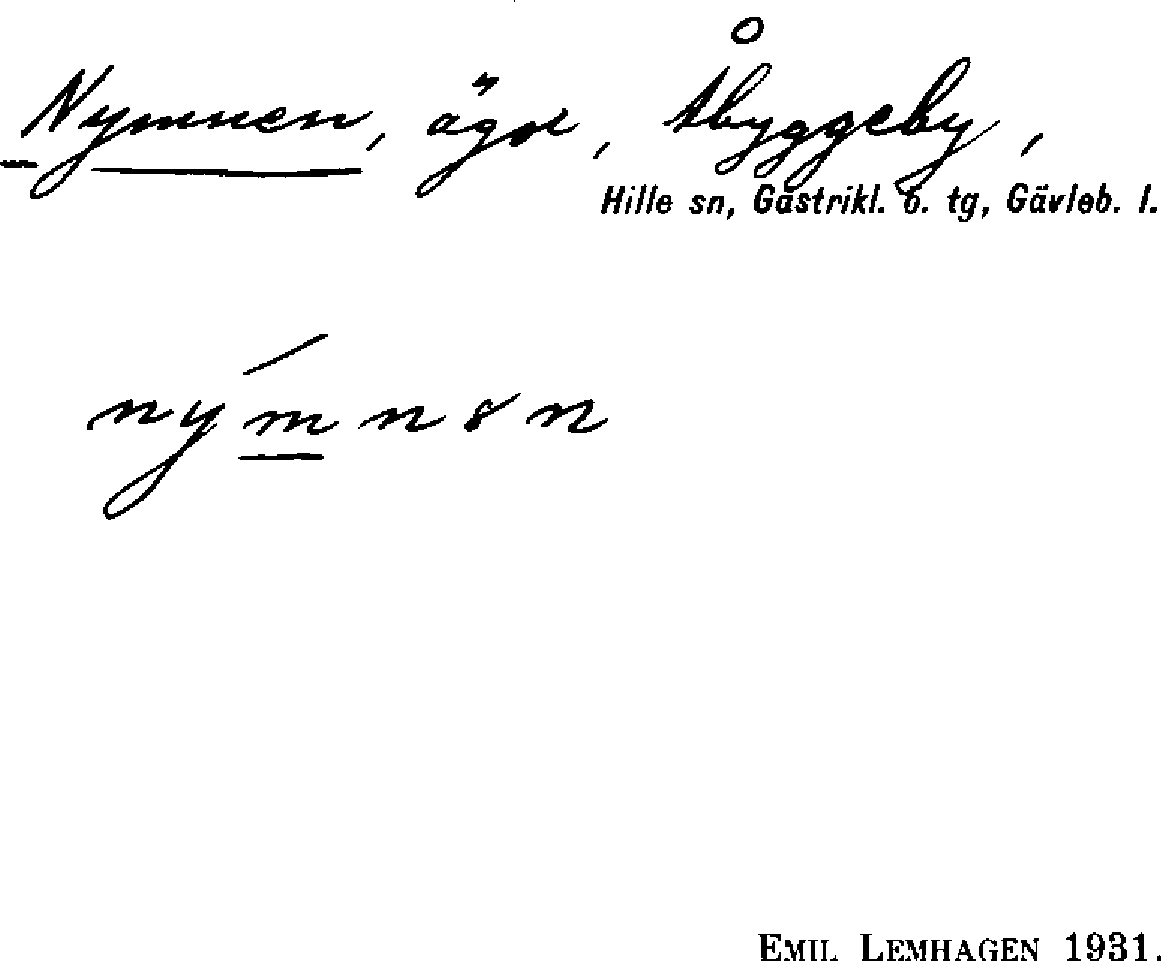 Nymnen, ägor, Åbyggeby,
Hille sn, Gästrikl. ö. tg, Gävleb. l.
nymnən
EMIL LEMHAGEN 1931.